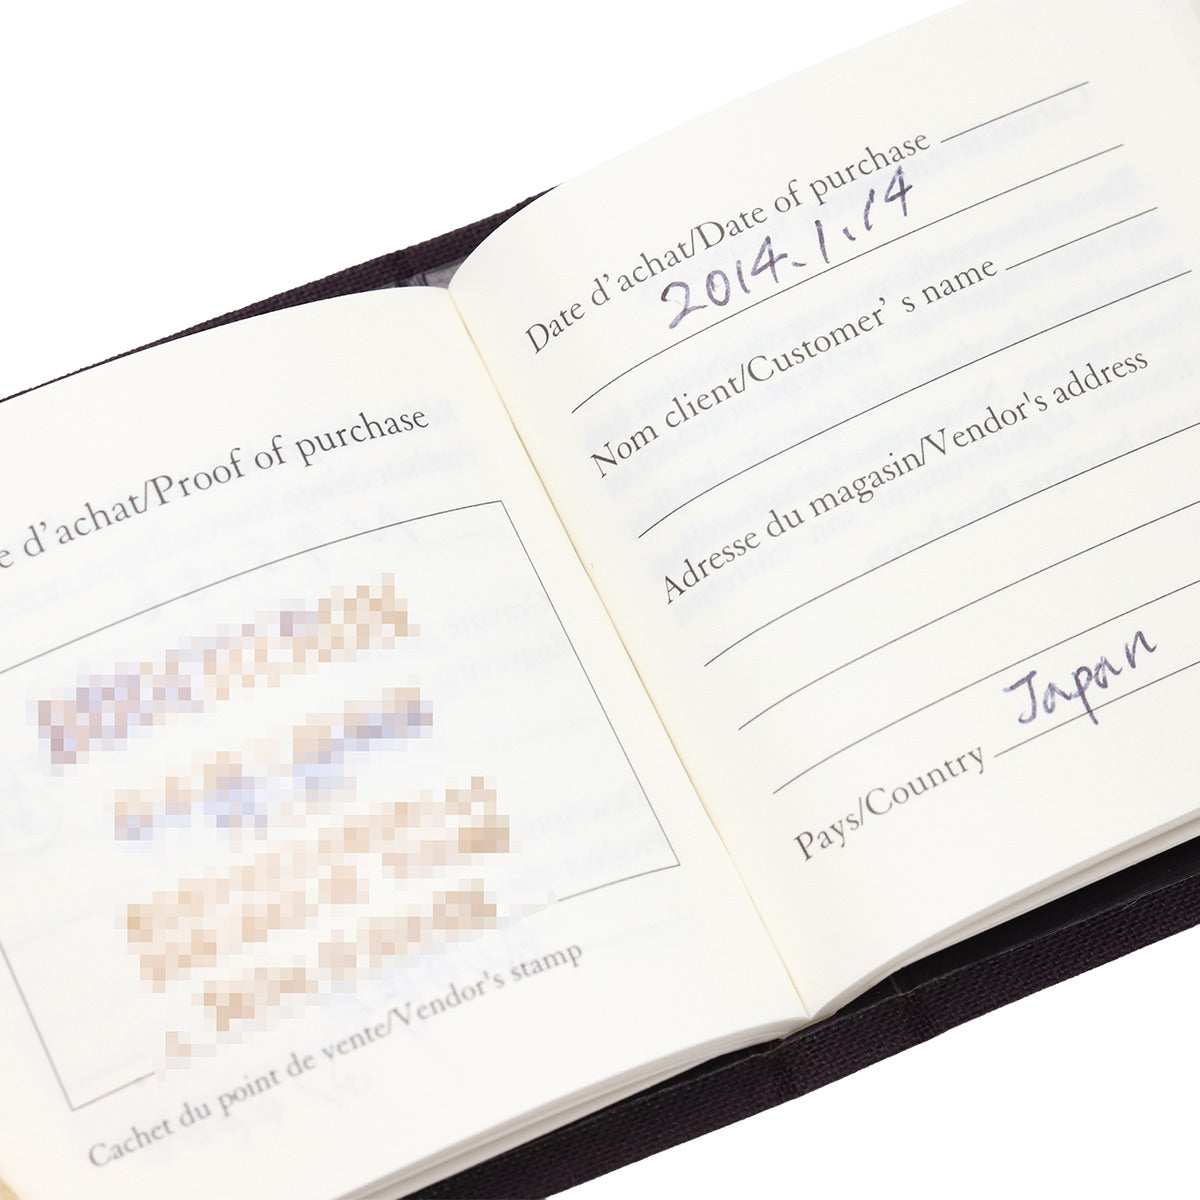 e d'achat/Proof of purchase
Cachet du point de vente/Vendor's stamp
Date d'achat/Date of purchase
2014.1.14
Nom client/Customer' s name
Adresse du magasin/Vendor's address
Japan
Pays/Country